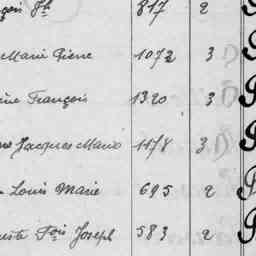 817 2
Marie Pierre 1072 3
François 1320 3
Jacques Marie 1178 3
Louis Marie 695 2
Fois Joseph 583 2